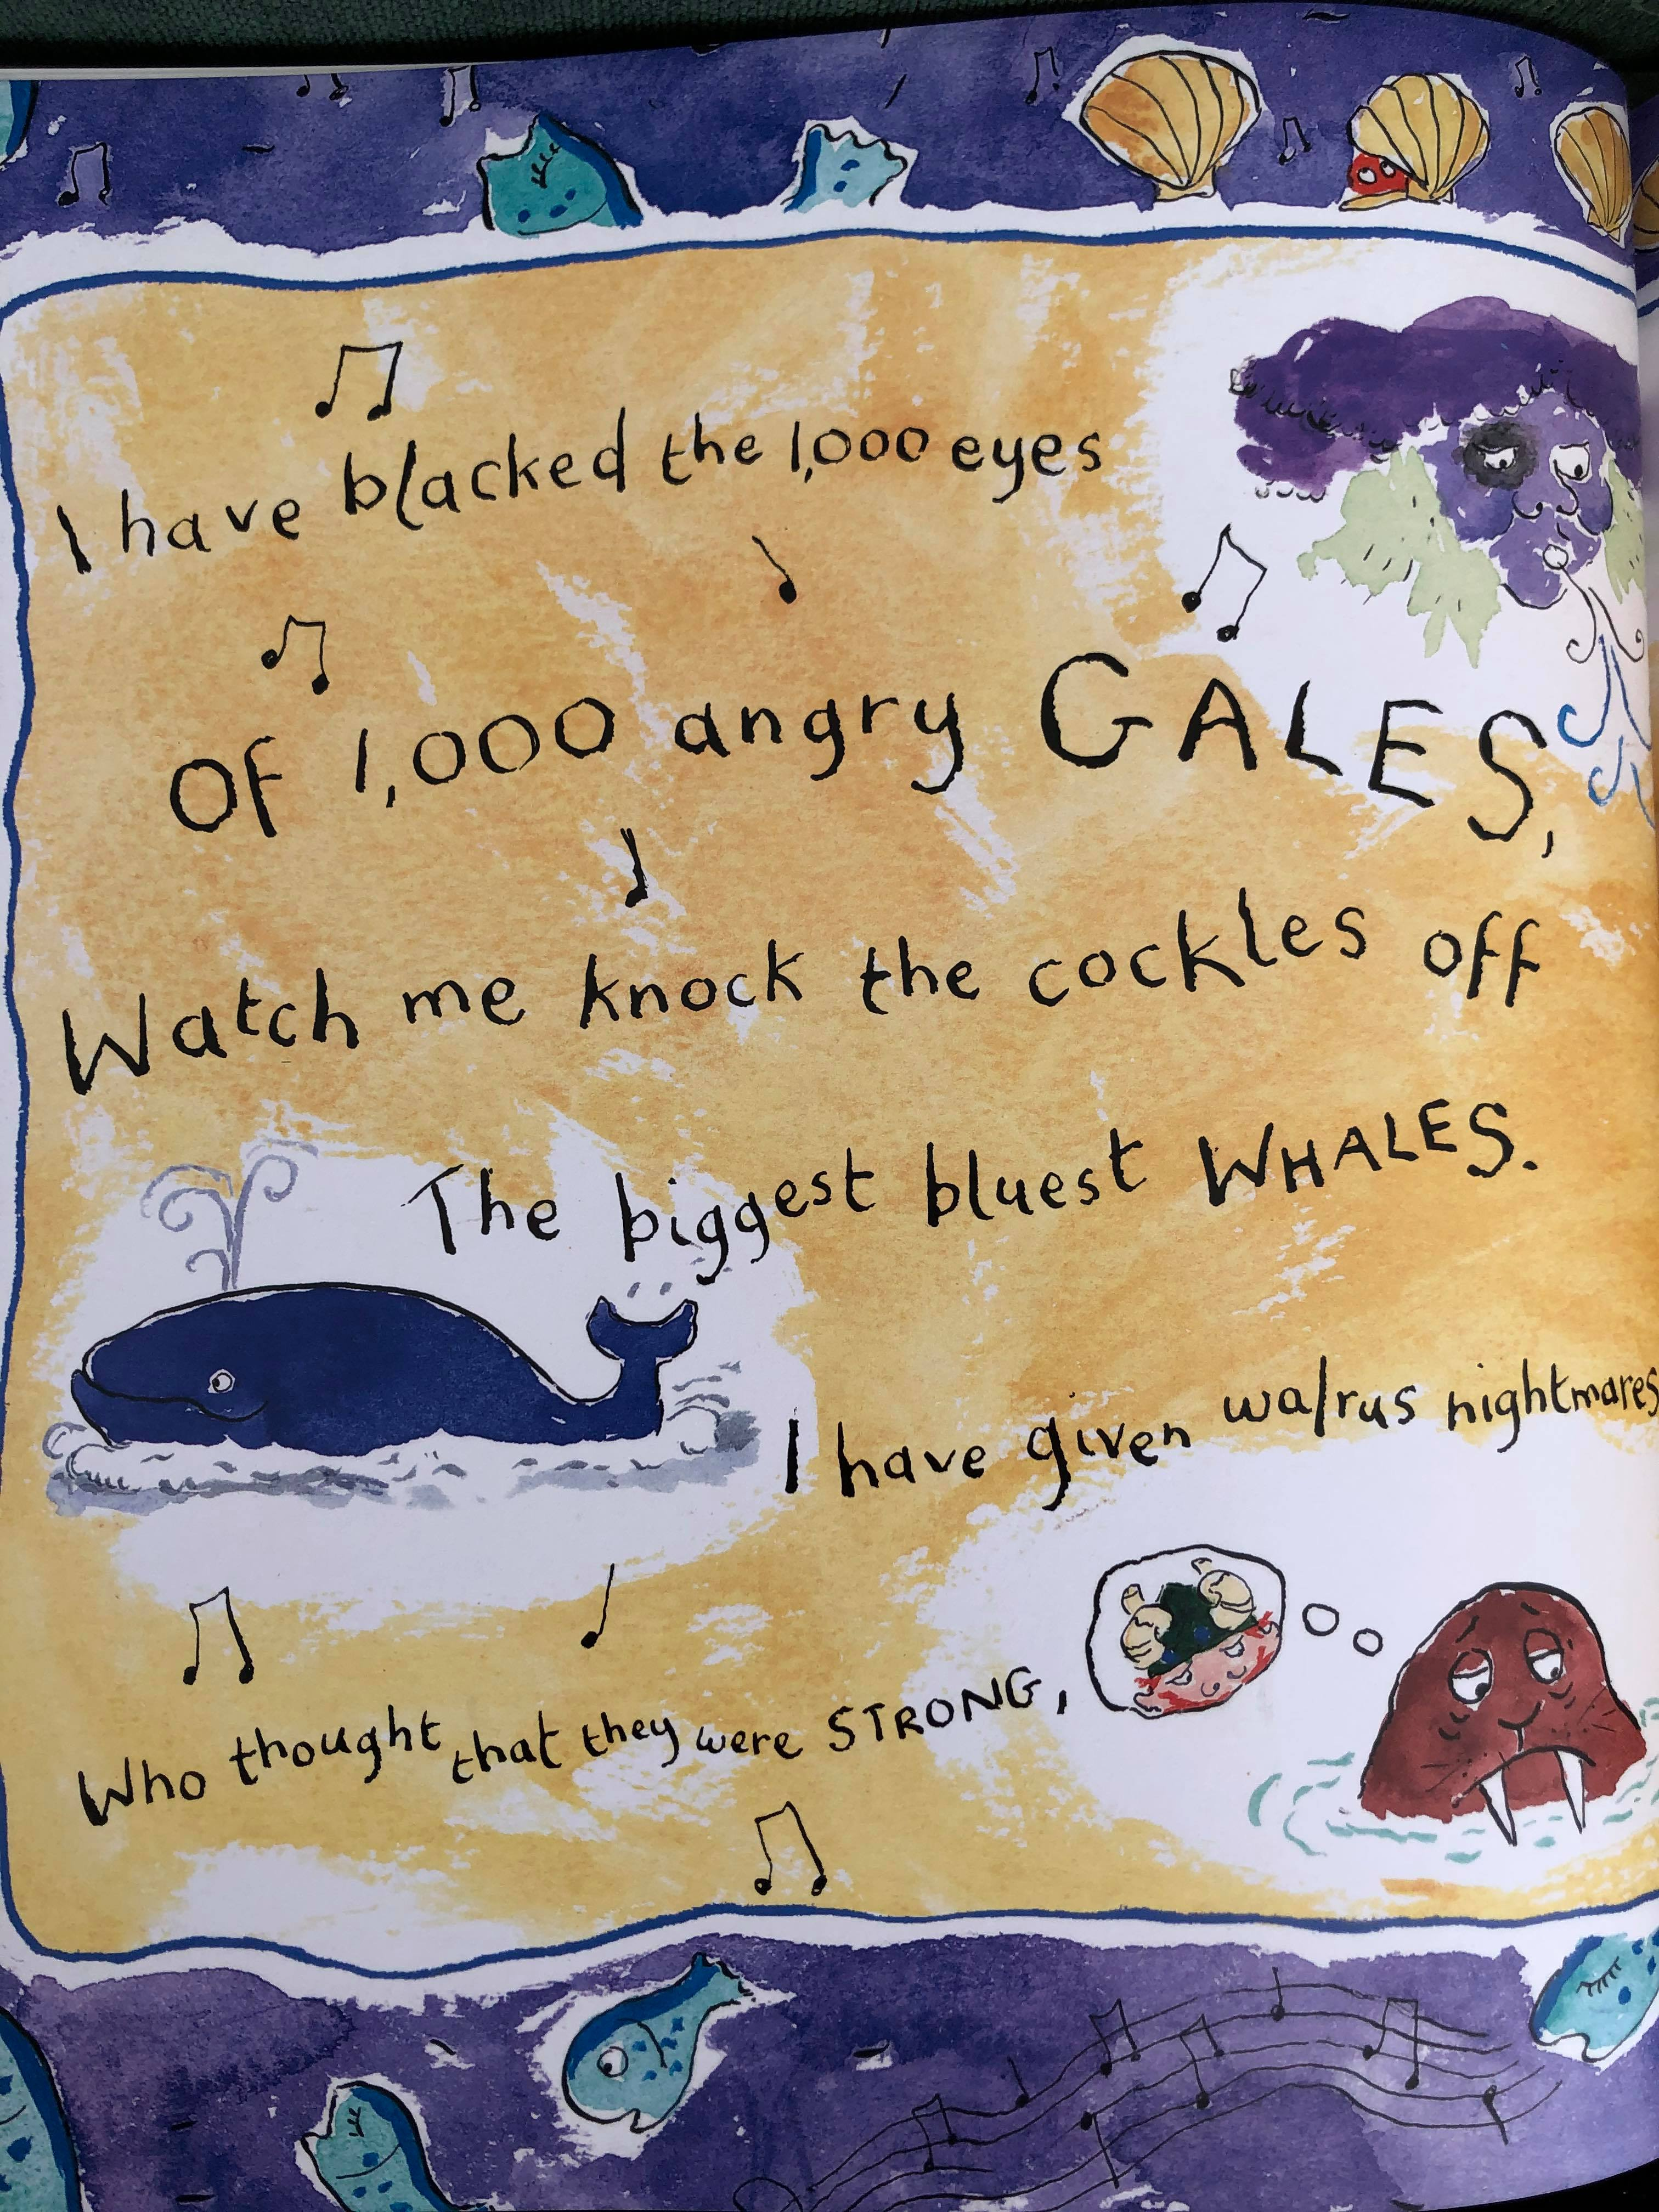 I have blacked the 1,000 eyes
Of 1,000 angry GALES,
Watch me knock the cockles off
The biggest bluest WHALES.
I have given walrus nightmares
Who thought that they were STRONG,